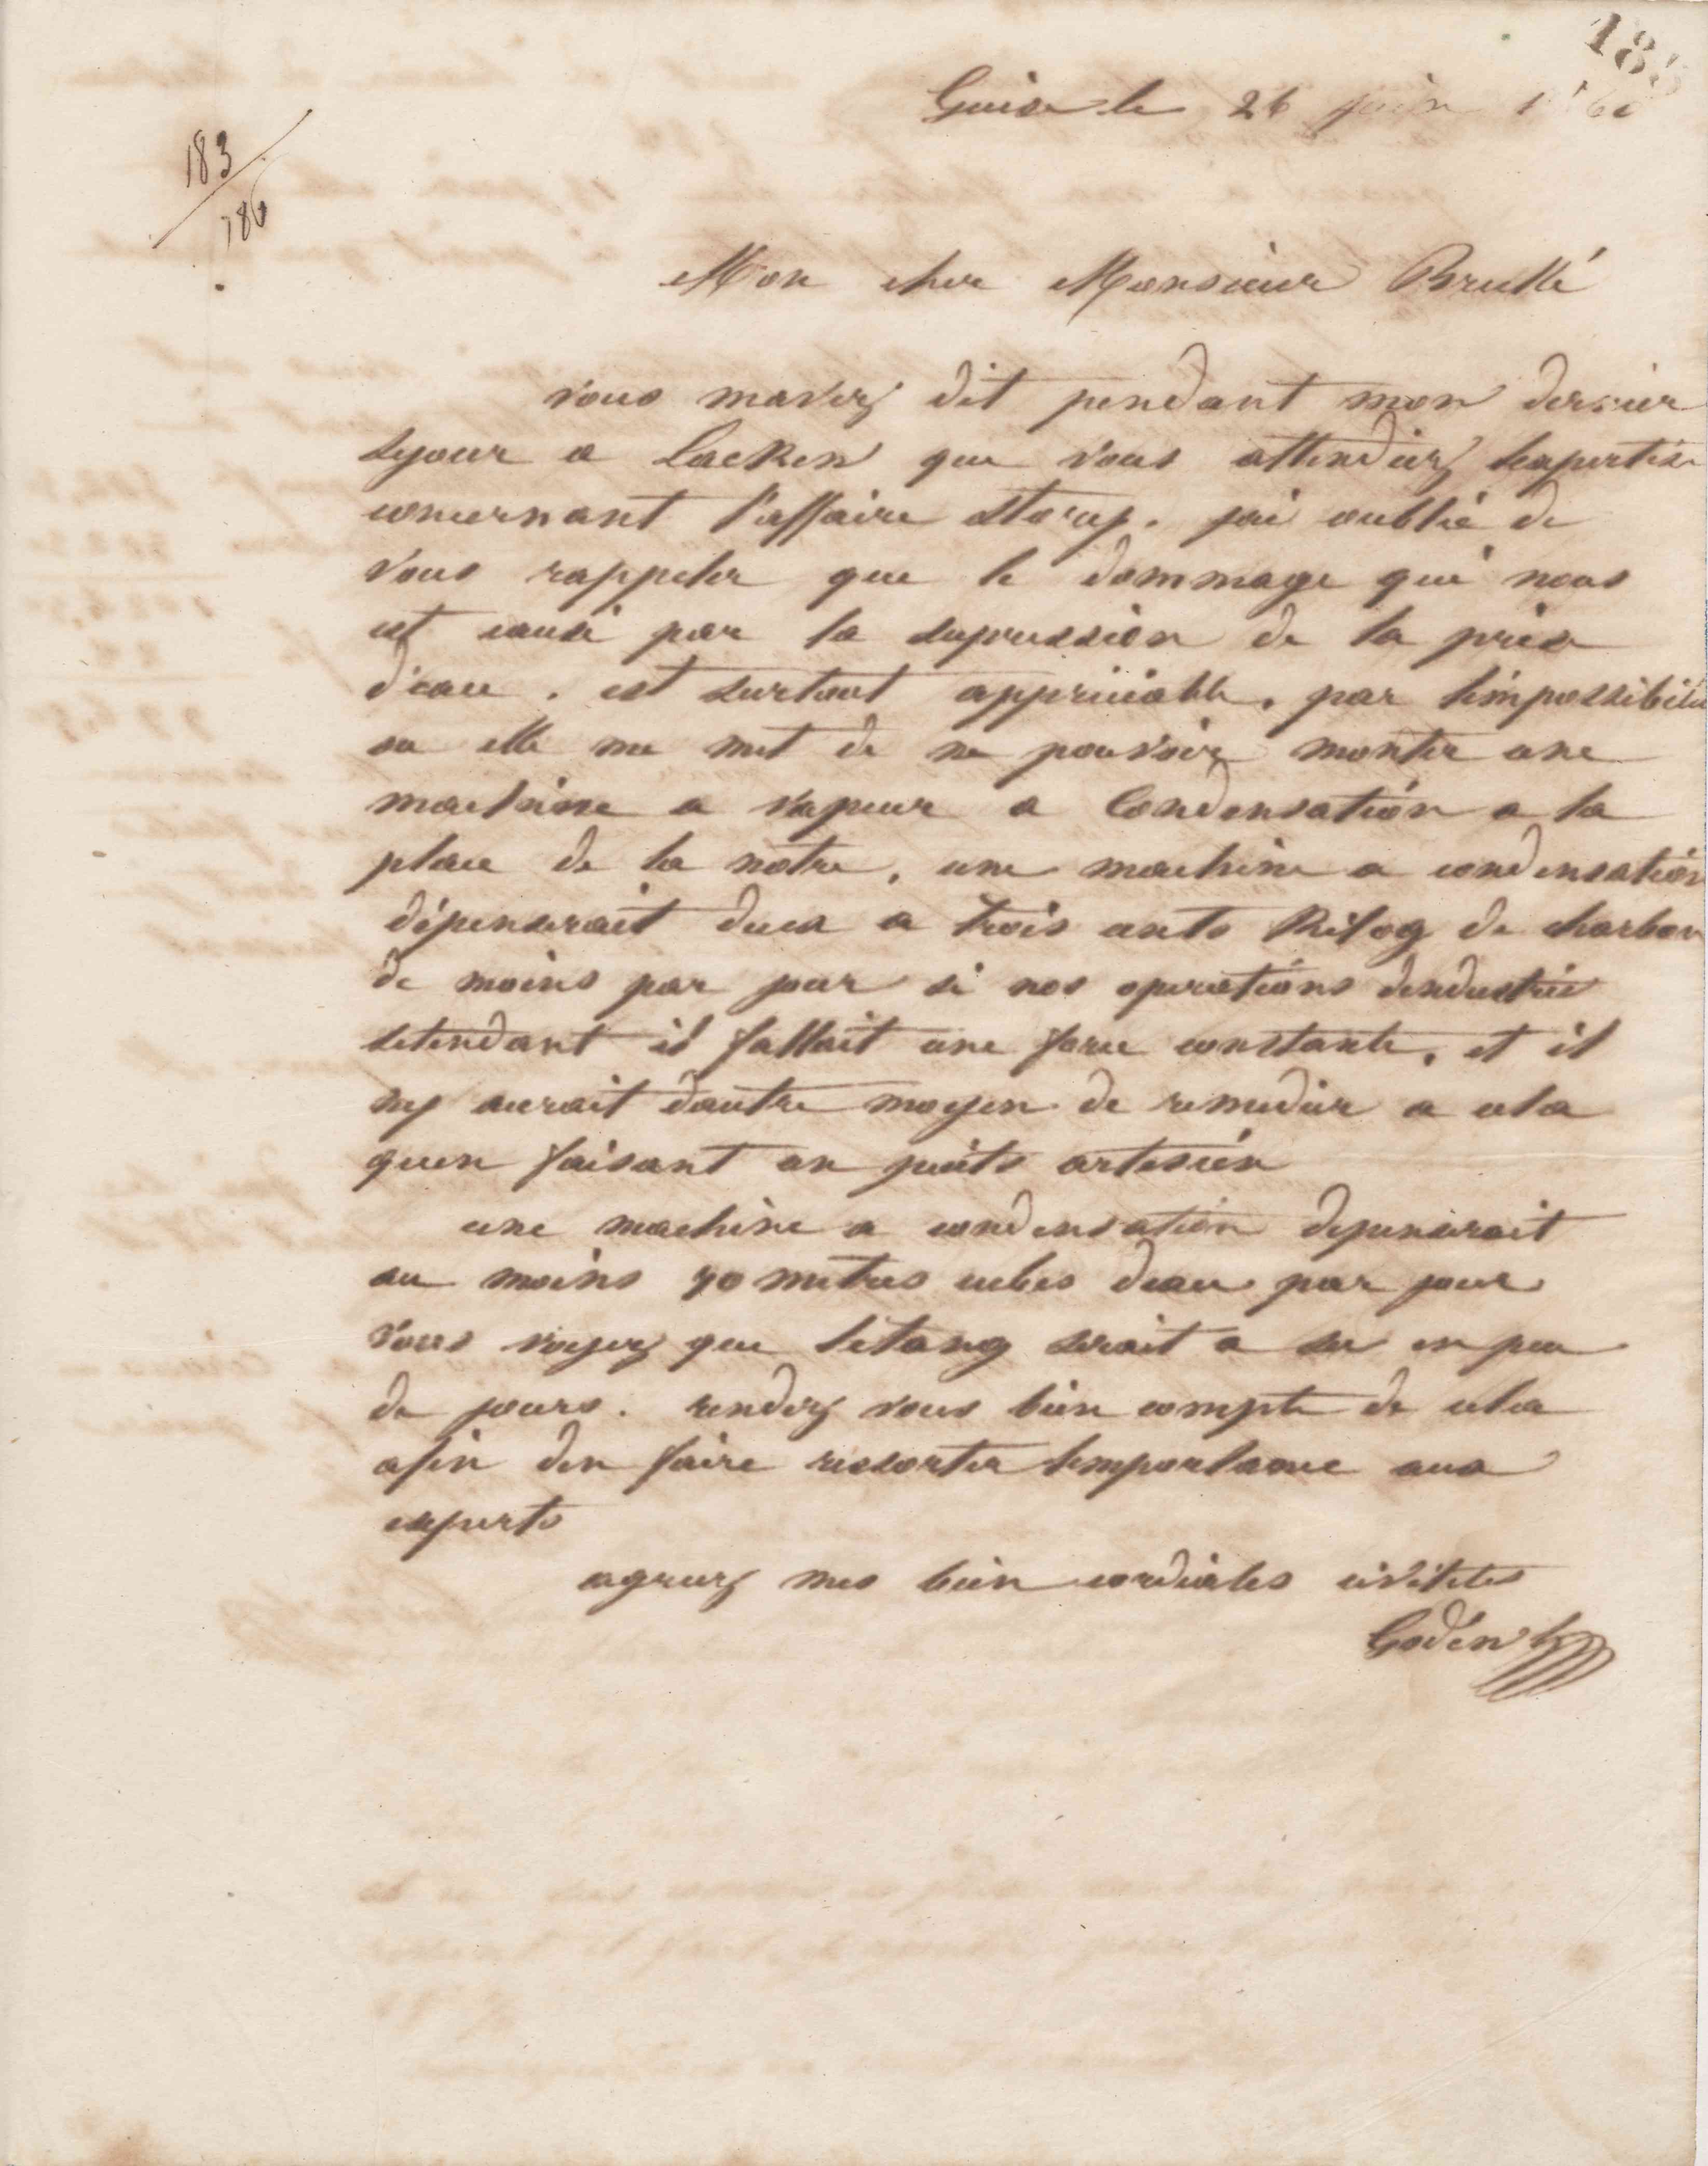 183
Guise le 26 juin
183
186
Mon cher Monsieur Brullé
vous mavez dit pendant mon dernier
sejour a Laeken que vous attendiez lexpertise
concernant l'affaire Storez. jai oublié de
vous rappeler que le dommage qui nous
est causé par la supression de la prise
d'eau. est surtout appréciable. par limpossibilité
ou elle me met de ne pouvoir monter une
machine a vapeur a Condensation a la
place de la notre. une machine a condensation
dépenserait deux a trois cents Kilog de charbon
de moins par jour si nos operations dindustrie
setendant il fallait une force constante. et il
ny aurait dautre moyen de remedier a cela
quen faisant un puits artesien
une machine a condensation depenserait
au moins 90 metres cubes deau par jour
vous voyez que letang serait a sec en peu
de jours. rendez vous bien compte de cela
afin den faire ressortir limportance aux
experts
agreez mes bien cordiales civilites
Godin